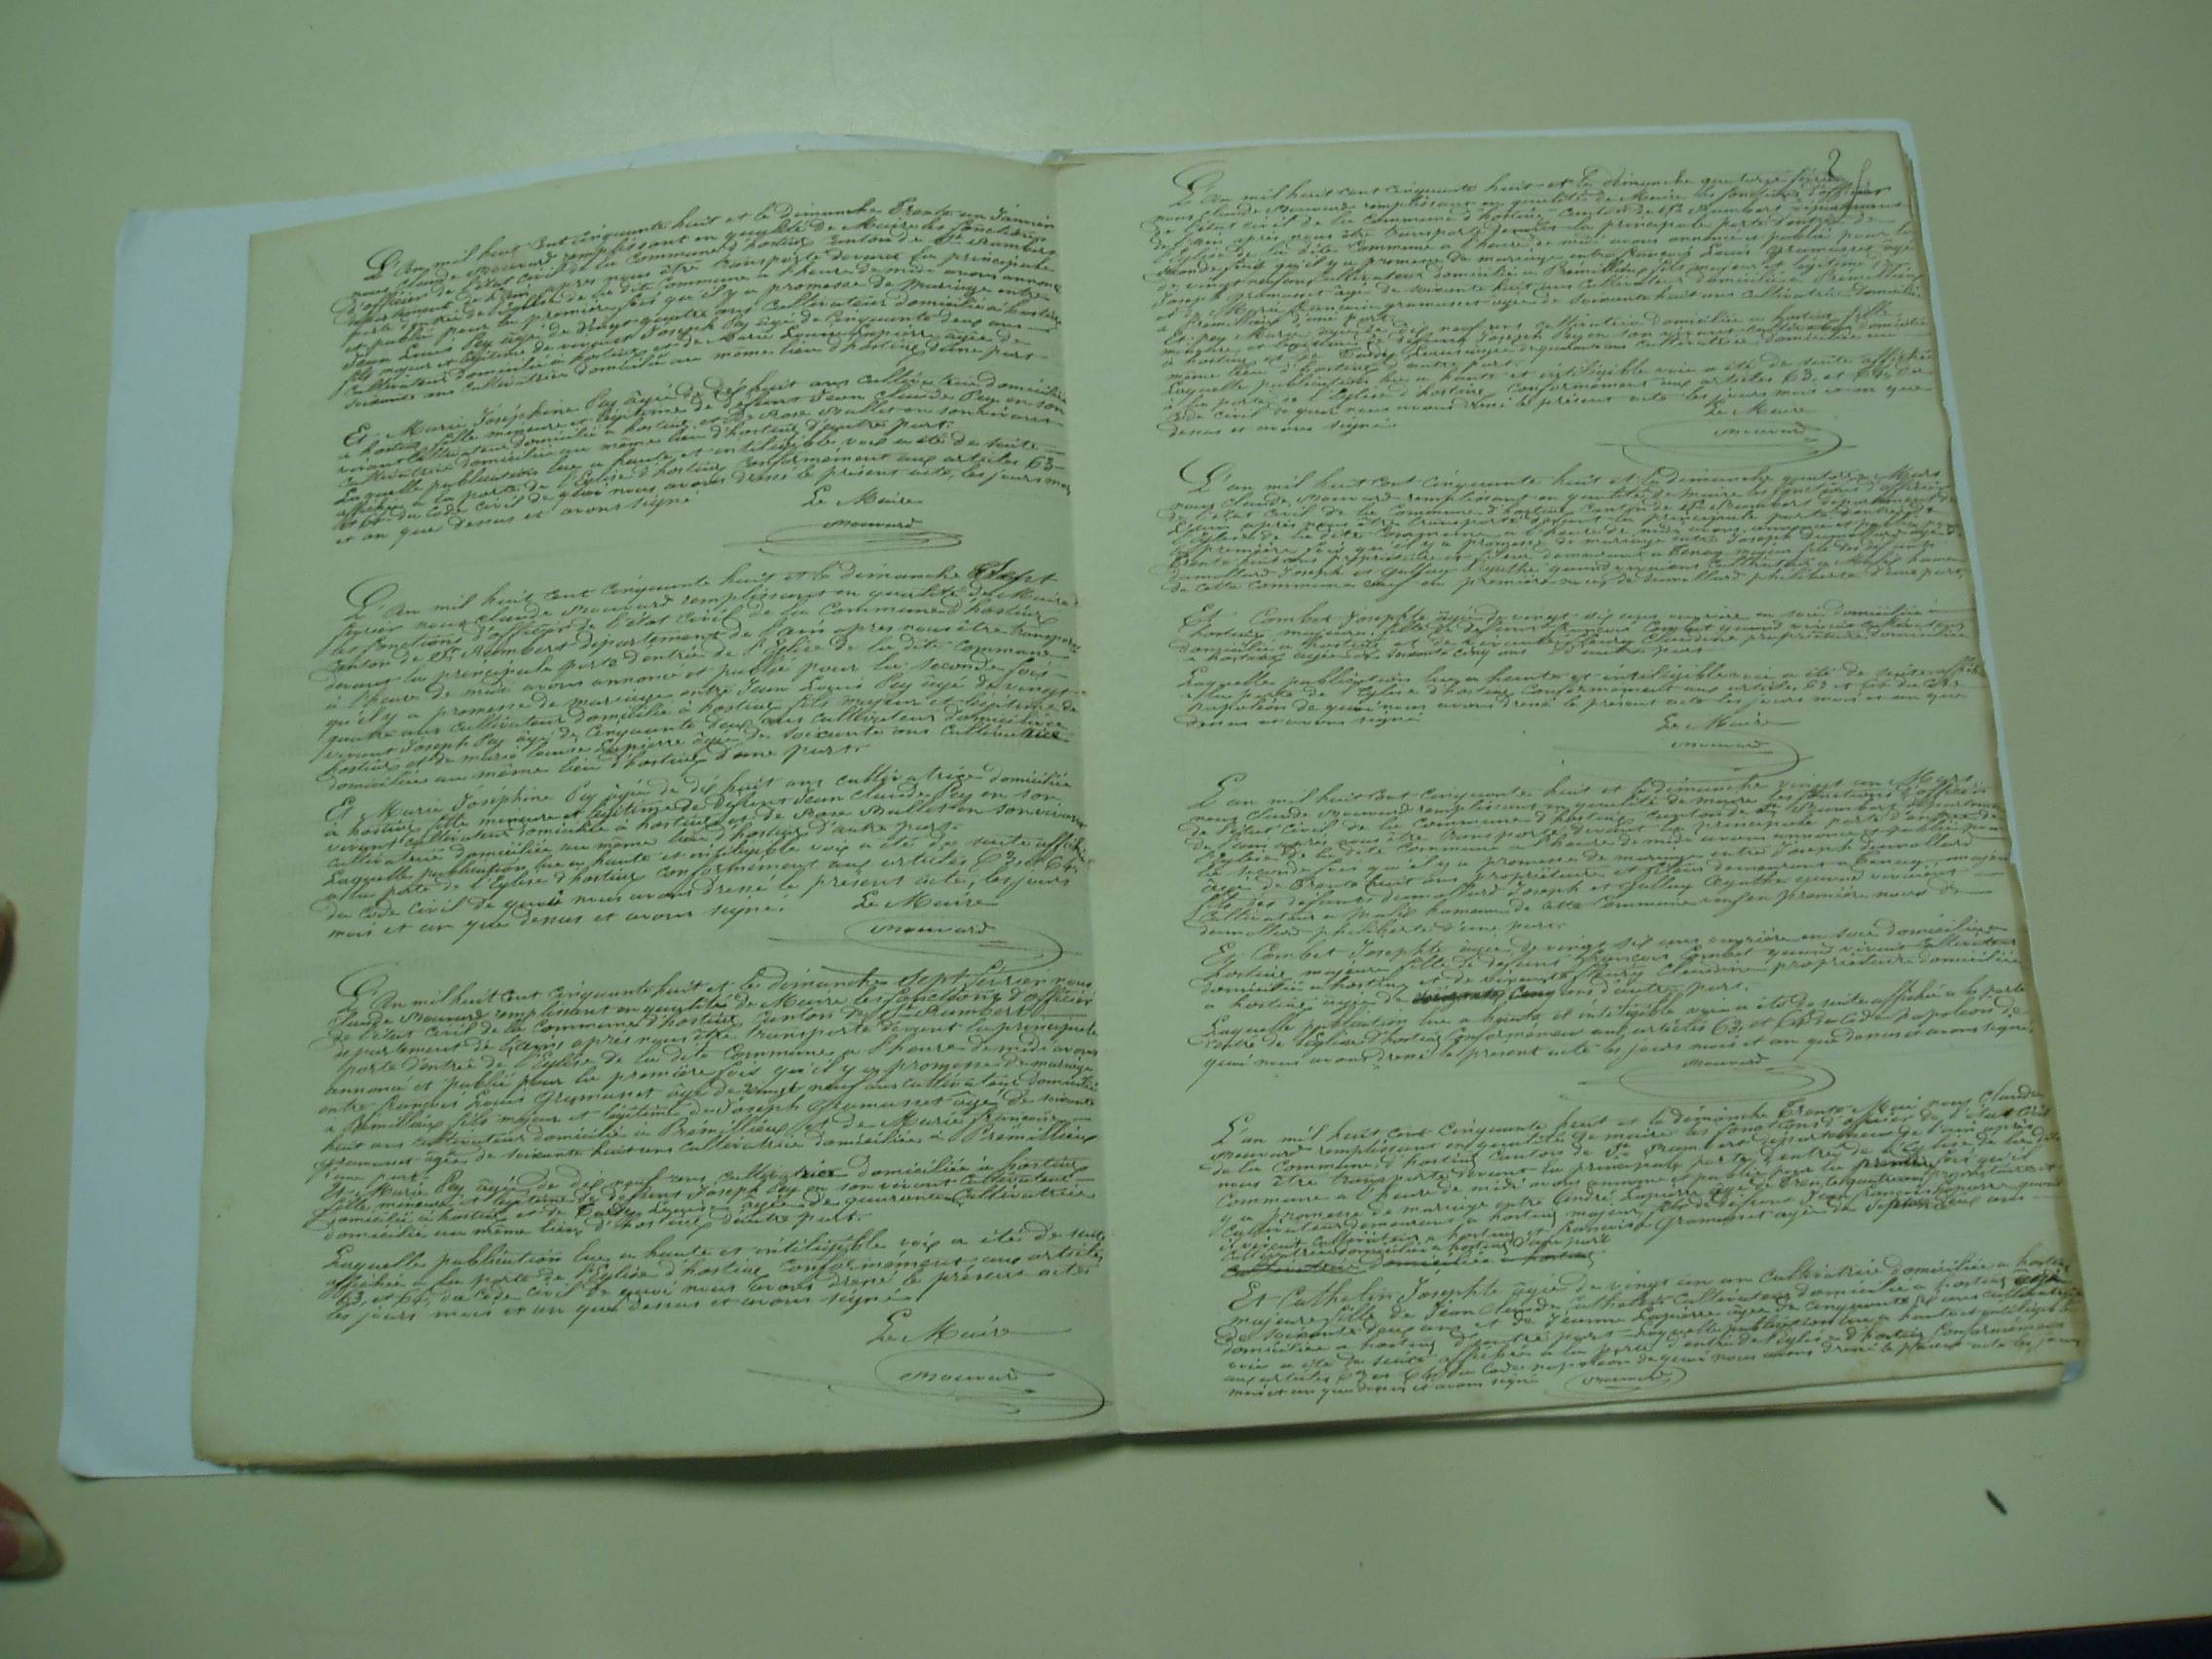 L'an mil huit cent cinquante huit et le dimanche Trente un Janvier
nous Claude Mouvard remplissant en qualité de Maire les fonctions
d'officier de l'état civil de la Commune d'hostiaz Canton de St Rambert
département de l'ain, après nous être transporté devant la principale
porte d'entrée de l'Eglise de la dite Commune a l'heure de midi avons annoncé
et publié pour la première fois qu'il y a promesse de mariage entre
Jean Louis Pey âgé de vingt quatre ans Cultivateur domicilié à hostiaz
fils majeur et légitime de vivant Joseph Pey âgé de Cinquante deux ans
Cultivateur domicilié à hostiaz et de Marie Louise Lapierre âgée de
soixante ans Cultivatrice domiciliée au même lieu d'hostiaz d'une part
Et Marie Joséphine Pey âgée de dix huit ans cultivatrice domiciliée
a hostiaz fille mineure et légitime de défunt Jean Claude Pey en son
vivant Cultivateur domicilié à hostiaz et de Rose Mallet en son vivant
cultivatrice domiciliée au même lieu d'hostiaz d'autre part.
Laquelle publication lue a haute et intiligible voix a été de suite
affichée a la porte de l'Eglise d'hostiaz Conformément aux articles 63
et 64 du Code Civil de quoi nous avons dressé le présent acte, les jours mois
et an que dessus et avons signé
Le Maire
Mouvard
L'an mil huit cent cinquante huit et le dimanche Sept
fevrier nous Claude Mouvard remplissant en qualité de Maire
les fonctions d'officier de l'état Civil de la Commune d'hostiaz
Canton de St Rambert département de l'ain apres nous être transporté
devant la principale porte d'entrée de l'Eglise de la dite Commune
à l'heure de midi avons annoncé et publié pour la seconde fois
qu'il y a promesse de mariage entre Jean Louis Pey âgé de vingt
quatre ans cultivateur domicilié à hostiaz fils majeur et légitime de
vivant Joseph Pey âgé de Cinquante deux ans cultivateur domicilié a
hostiaz et de marie louise Lapierre âgée de soixante ans cultivatrice
domiciliée au même lieu d'hostiaz d'une part.
Et Marie Joséphine Pey âgée de dix huit ans cultivatrice domiciliée
à hostiaz fille mineure et légitime de défunt Jean Claude Pey en son
vivant cultivateur domicilié à hostiaz et de Rose Mallet en son vivant
cultivatrice domiciliée au même lieu d'hostiaz d'autre part.
Laquelle publication lue a haute et intiligible voix a été de suite affichée
a la porte de l'Eglise d'hostiaz conformément aux articles 63 et 64
du Code Civil de quoi nous avons dressé le présent acte, les jours
mois et an que dessus et avons signé.
Le Maire
Mouvard
L'an mil huit cent cinquante huit et le dimanche Sept fevrier nous
Claude Mouvard remplissant en qualité de Maire les fonctions d'officier
de l'état civil de la Commune d'hostiaz Canton de St Rambert
département de l'ain après nous être transporté devant la principale
porte d'entrée de l'Eglise de la dite Commune a l'heure de midi avons
annoncé et publié pour la première fois qu'il y a promesse de mariage
entre françois Louis Gramusset âgé de vingt neuf ans cultivateur domicilié
a Prémillieux fils majeur et légitime de Joseph Gramusset âgé de soixante
huit ans cultivateur domicilié à Prémillieux et de Marie françoise
Gramusset âgée de soixante huit ans cultivatrice domiciliée à Prémillieux
d'une part.
Et Marie Pey âgée de dix neuf ans cultivatrice domiciliée à hostiaz
fille mineure et légitime de défunt Joseph Pey en son vivant cultivateur
domicilié à hostiaz et de Tardy âgée de quarante cultivatrice
domiciliée au même lieu d'hostiaz d'autre part.
Laquelle publication lue a haute et intiligible voix a été de suite
affichée à la porte de l'Eglise d'hostiaz Conformément aux articles
63, et 64, du Code Civil de quoi nous avons dressé le présent acte
les jours mois et an que dessus et avons signé.
Le Maire
Mouvard
2
L'an mil huit cent cinquante huit et le dimanche quatorze février
nous Claude Mouvard remplissant en qualité de Maire les fonctions d'officier
de l'état civil de la Commune d'hostiaz Canton de St Rambert département
de l'ain après nous être transporté devant la principale porte d'entrée de
l'Eglise de la dite Commune a l'heure de midi avons annoncé et publié pour la
seconde fois qu'il y a promesse de mariage entre françois Louis Gramusset âgé
de vingt neuf ans cultivateur domicilié a Prémillieux fils majeur et légitime de
Joseph Gramusset âgé de soixante huit ans cultivateur domicilié à Prémillieux
et de Marie françoise gramusset âgée de soixante huit ans cultivatrice domiciliée
a Prémillieux d'une part.
Et Pey Marie âgée de dix neuf ans cultivatrice domiciliée a hostiaz fille
mineure et légitime de défunt Joseph Pey en son vivant cultivateur domicilié
a hostiaz et de Tardy âgée de quarante ans cultivatrice domiciliée au
même lieu d'hostiaz d'autre part.
Laquelle publication lue a haute et intiligible voix a été de suite affichée
à la porte de l'Eglise d'hostiaz conformément aux articles 63, et 64, du
Code Civil de quoi nous avons dressé le présent acte les jours mois et an que
dessus et avons signé.
Le Maire
Mouvard
L'an mil huit cent cinquante huit et le dimanche quatorze Mars
nous Claude Mouvard remplissant en qualité de maire les fonctions d'officier
de l'état civil de la Commune d'hostiaz Canton de St Rambert département de
l'ain après nous être transporté devant la principale porte d'entrée de
l'Eglise de la dite Commune a l'heure de midi avons annoncé et publié pour
la première fois qu'il y a promesse de mariage entre Joseph Dumollard âgé de
trente huit ans propriétaire et demeurant a Tenay majeur fils des défunts
dumollard Joseph et Agathe quand vivaient Cultivateurs a hameau
de cette Commune veuf en première noces de dumollard philiberte d'une part,
Et Combet Josephte âgée de vingt six ans ouvrière en soie domiciliée a
hostiaz, majeure fille de défunt françois Combet quand vivait cultivateur
domicilié a hostiaz et de vivante fleury Claudine propriétaire domiciliée
a hostiaz âgée de soixante cinq ans d'autre part
Laquelle publication lue a haute et intiligible voix a été de suite affichée
a la porte de l'Eglise d'hostiaz Conformément aux articles 63 et 64 du Code
Napoléon de quoi nous avons dressé le présent acte les jours mois et an que
dessus et avons signé
Le Maire
Mouvard
L'an mil huit cent cinquante huit et le dimanche vingt un Mars
nous Claude Mouvard remplissant en qualité de maire les fonctions d'officier
de l'état civil de la Commune d'hostiaz canton de St Rambert département
de l'ain après nous être transporté devant la principale porte d'entrée de
l'Eglise de la dite Commune a l'heure de midi avons annoncé et publié pour
la seconde fois qu'il y a promesse de mariage entre Joseph dumollard
âgé de trente huit ans propriétaire et demeurant a Tenay, majeur
fils des défunts dumollard Joseph et Agathe quand vivaient
Cultivateurs a hameau de cette Commune veuf en première noces de
dumollard philiberte d'une part.
Et Combet Josephte âgée de vingt six ans ouvrière en soie domiciliée a
hostiaz majeure fille de défunt françois Combet quand vivait cultivateur
domicilié a hostiaz et de vivante fleury Claudine propriétaire domiciliée
a hostiaz âgée de cinq ans d'autre part.
Laquelle publication lue a haute et intiligible voix a été de suite affichée a la porte
d'entrée de l'Eglise d'hostiaz Conformément aux articles 63, et 64 du Code Napoléon de
quoi nous avons dressé le présent acte les jours mois et an que dessus et avons signé.
Mouvard
L'an mil huit cent cinquante huit et le dimanche Trente Mai nous Claude
Mouvard remplissant en qualité de maire les fonctions d'officier de l'état civil
de la Commune d'hostiaz canton de St Rambert département de l'ain après
nous être transporté devant la principale porte d'entrée de l'Eglise de la dite
Commune a l'heure de midi avons annoncé et publié pour la première fois qu'il
y a promesse de mariage entre André Lapierre âgé de trente quatre ans propriétaire et
Cultivateur demeurant a hostiaz majeur fils de défunt Jean françois Lapierre quand
il vivait cultivateur a hostiaz et françoise Gramusset âgée de ans
cultivatrice domiciliée a hostiaz d'une part
cultivatrice domiciliée a hostiaz
Et Cathelin Josephte âgée de vingt un an cultivatrice domiciliée a hostiaz
majeure fille de Jean Claude Cathelin Cultivateur domicilié a hostiaz âgé
de soixante deux ans et de Jeanne Lapierre âgée de cinquante ans cultivatrice
domiciliée a hostiaz d'autre part Laquelle publication lue a haute et intiligible
voix a été de suite affichée a la porte d'entrée de l'Eglise d'hostiaz Conformément
aux articles 63 et 64 du Code napoleon de quoi nous avons dressé le présent acte les jours
mois et an que dessus et avons signé
Mouvard